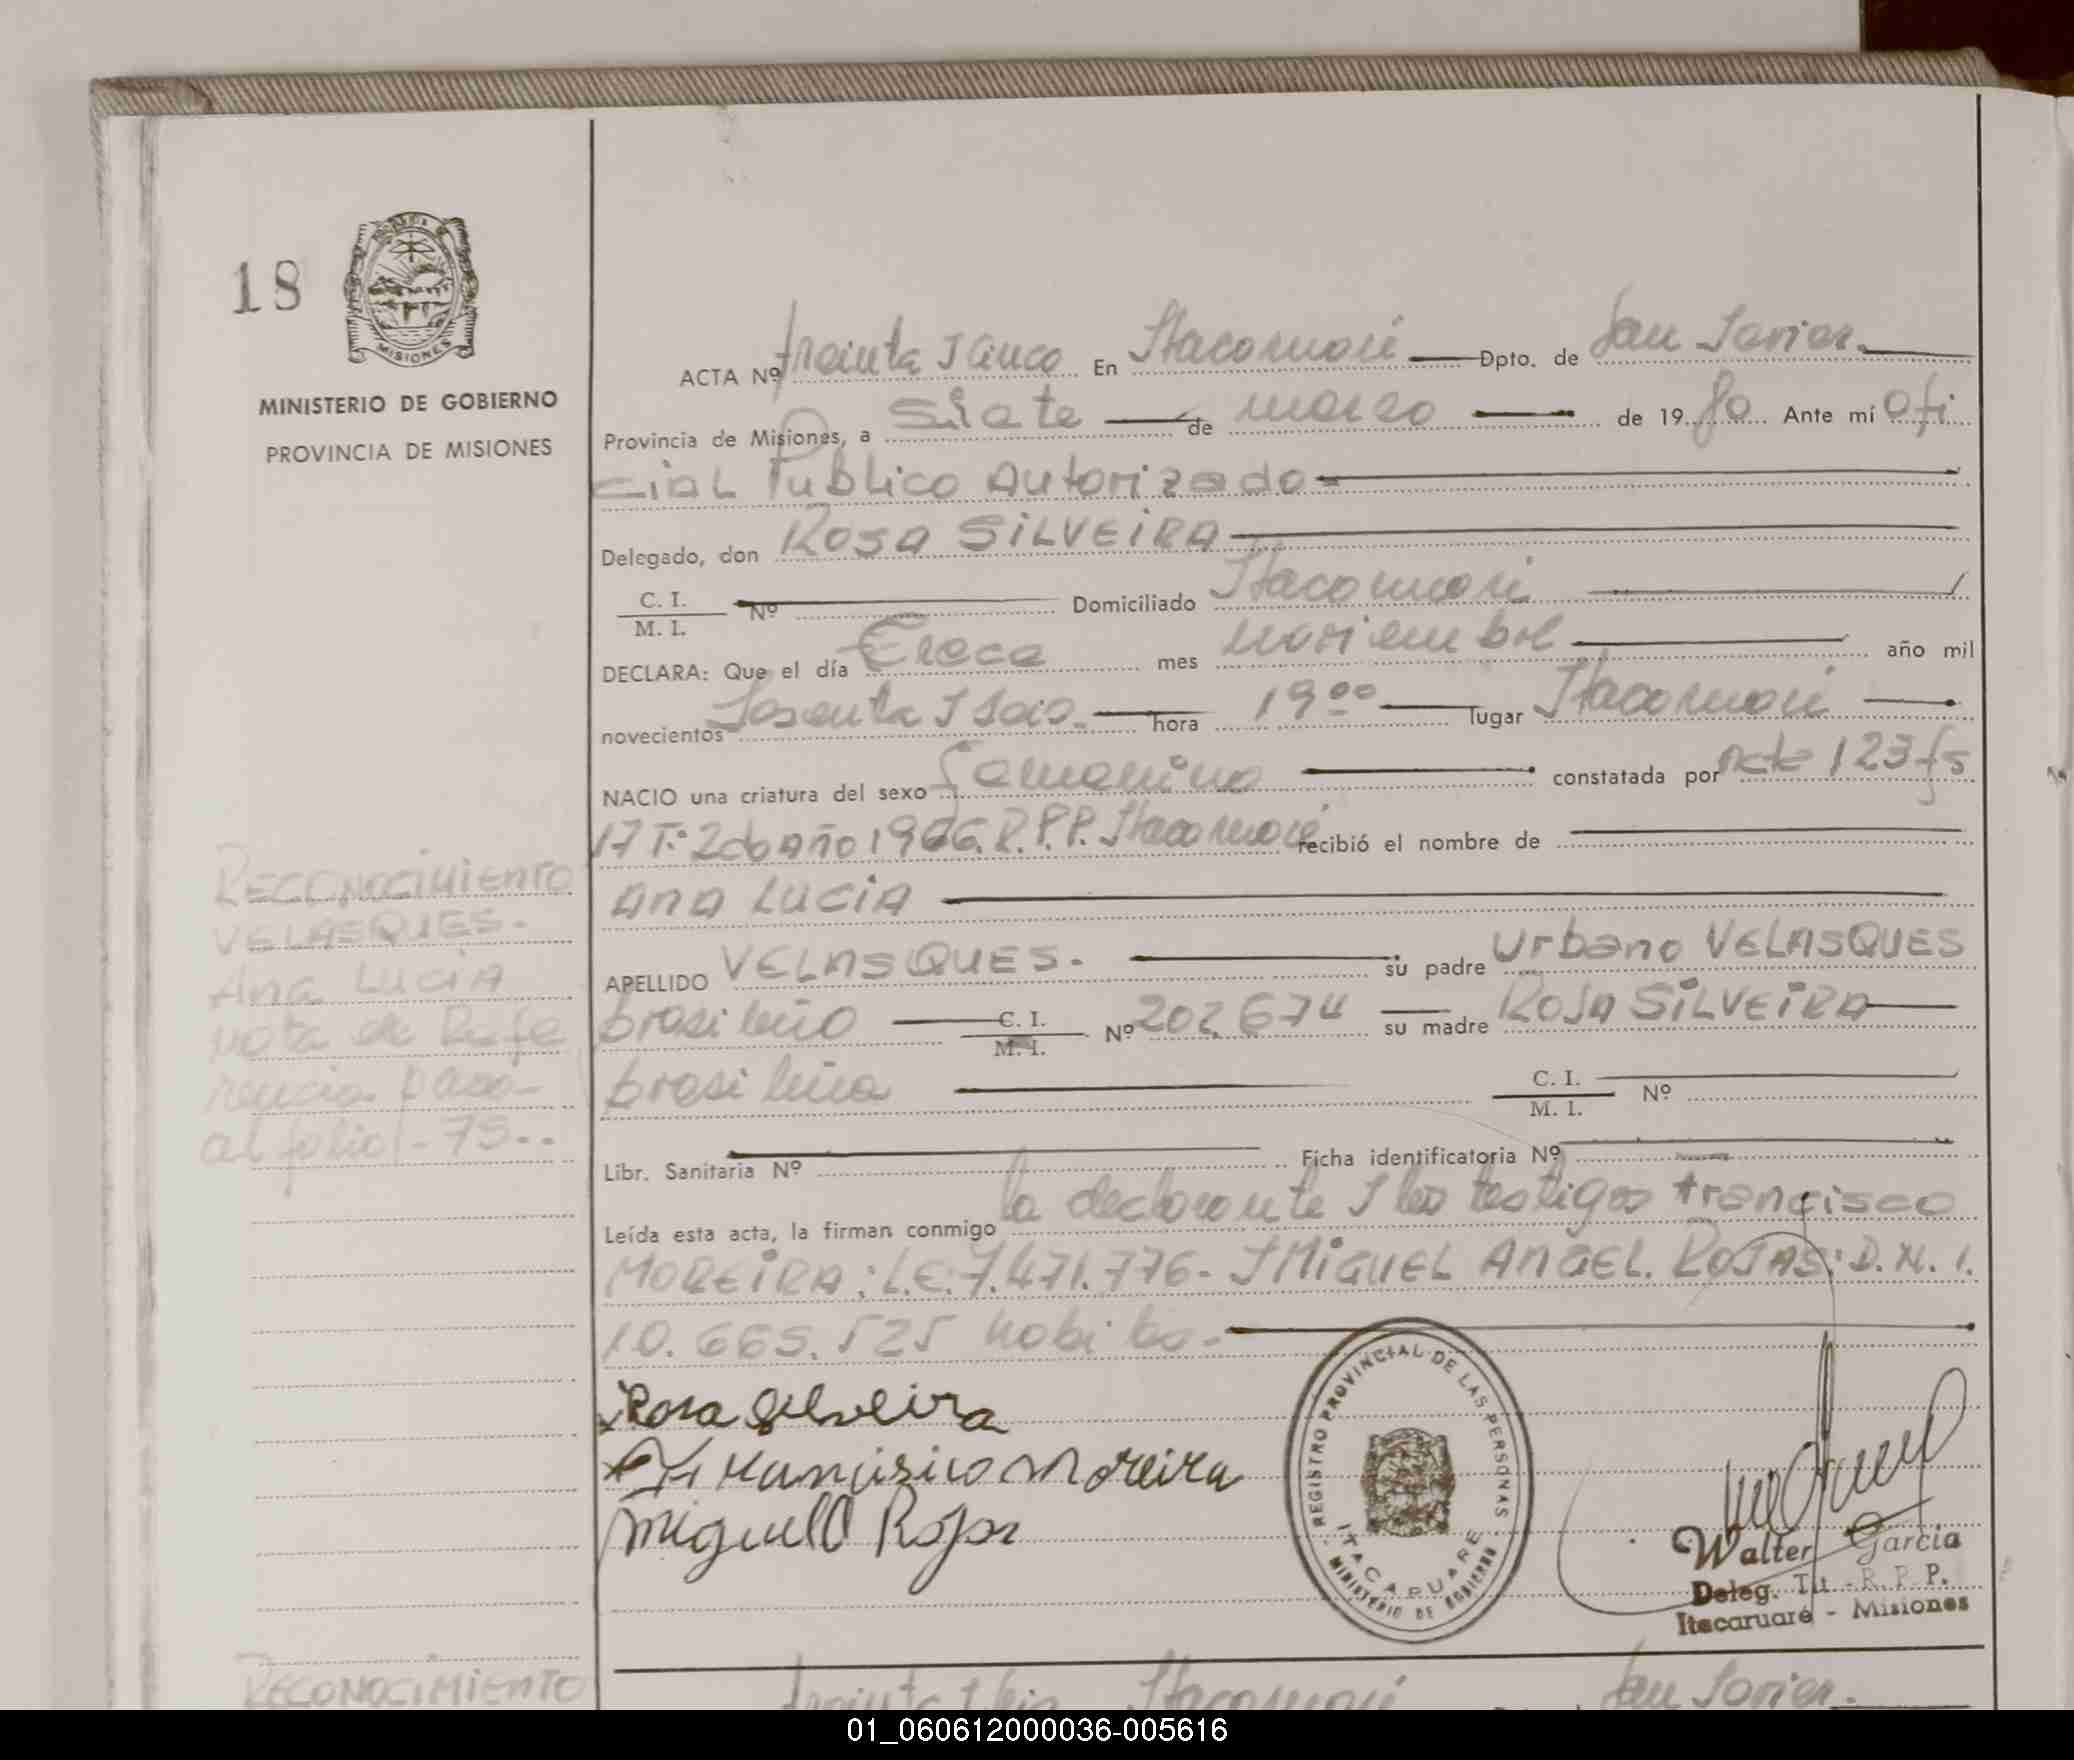 18
MISIONES
MINISTERIO DE GOBIERNO
PROVINCIA DE MISIONES
ACTA Nº treinta y cinco En Itacaruaré Dpto. de San Javier.
Provincia de Misiones, a siete de marzo de 19 80 Ante mí Ofi
cial Publico Autorizado
Delegado, don ROSA SILVEIRA
C. I. / M. I. Nº Domiciliado Itacaruaré
DECLARA: Que el día trece mes noviembre año mil
novecientos sesenta y seis. hora 19 00 lugar Itacaruaré
NACIO una criatura del sexo femenino constatada por Acta 123 fs
17 T: 2do Año 1966. R.P.P. Itacaruaré recibió el nombre de
ANA LUCIA
APELLIDO VELASQUES. su padre Urbano VELASQUES
brasileño C. I. / M. I. Nº 202.674 su madre ROSA SILVEIRA
brasileña C. I. / M. I. Nº
Libr. Sanitaria Nº Ficha identificatoria Nº
Leída esta acta, la firman conmigo la declarante y los testigos Francisco
MOREIRA: L.E. 7.471.776- y MIGUEL ANGEL. ROJAS: D.N.I.
10.665.525 habiles.
Rosa Silveira
Francisico Moreira
Miguel Rojas
RECONOCIMIENTO
VELASQUES.
Ana LUCIA
nota de Refe
rencia pasa
al folio - 73..
REGISTRO PROVINCIAL DE LAS PERSONAS
ITACARUARE
MINISTERIO DE GOBIERNO
Walter Garcia
Deleg. Tit - R. P. P.
Itacaruaré - Misiones
RECONOCIMIENTO
treinta y seis Itacaruaré San Javier.
01_060612000036-005616